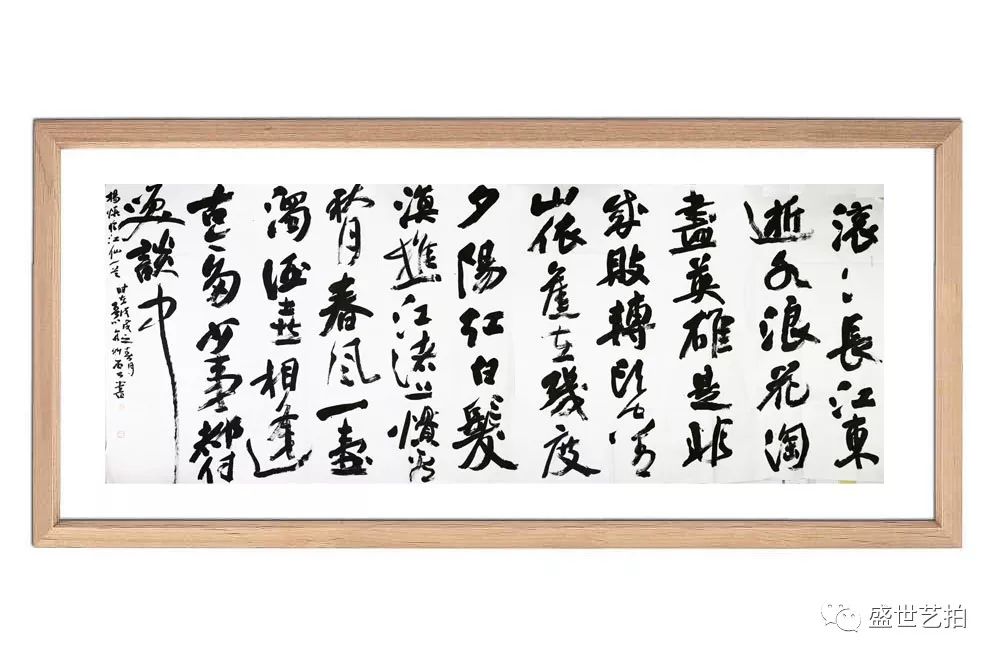 滚〻長江東
逝水浪花淘
盡英雄是非
成敗轉頭空青
山依舊在幾度
夕陽红白髮
漁樵江渚上慣看
秋月春風一壶
濁酒喜相逢
古今多少事都付
笑談中
楊慎临江仙一首
時在戊戌之春月
書
盛世艺拍